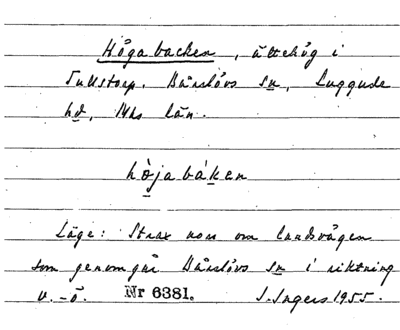 Högabacken, ättehög i
Tullstorp, Bårslövs sn, Luggude
hd, Mhs län.
hö̀jabáken
Läge: Strax norr om landsvägen
som genomgår Bårslövs sn i riktning
v.-ö. Nr 6381. I. Ingers 1955.